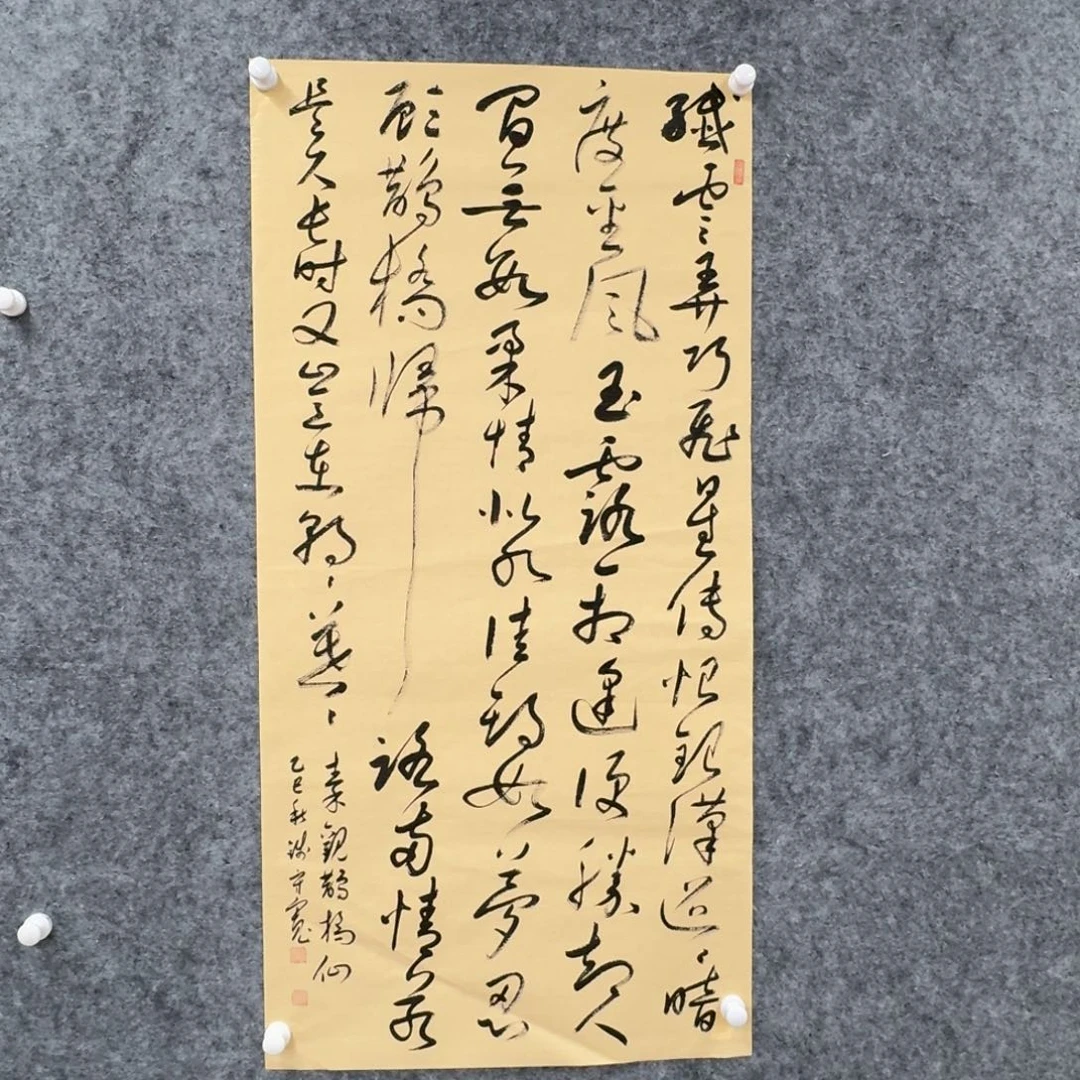 纖雲弄巧飛星傳恨銀漢迢々暗
度金風玉露一相逢便勝却人
間無數柔情似水佳期如夢忍
顧鵲橋歸路兩情若
是久長时又豈在朝々暮々
秦觀鵲橋仙
乙巳秋守寬